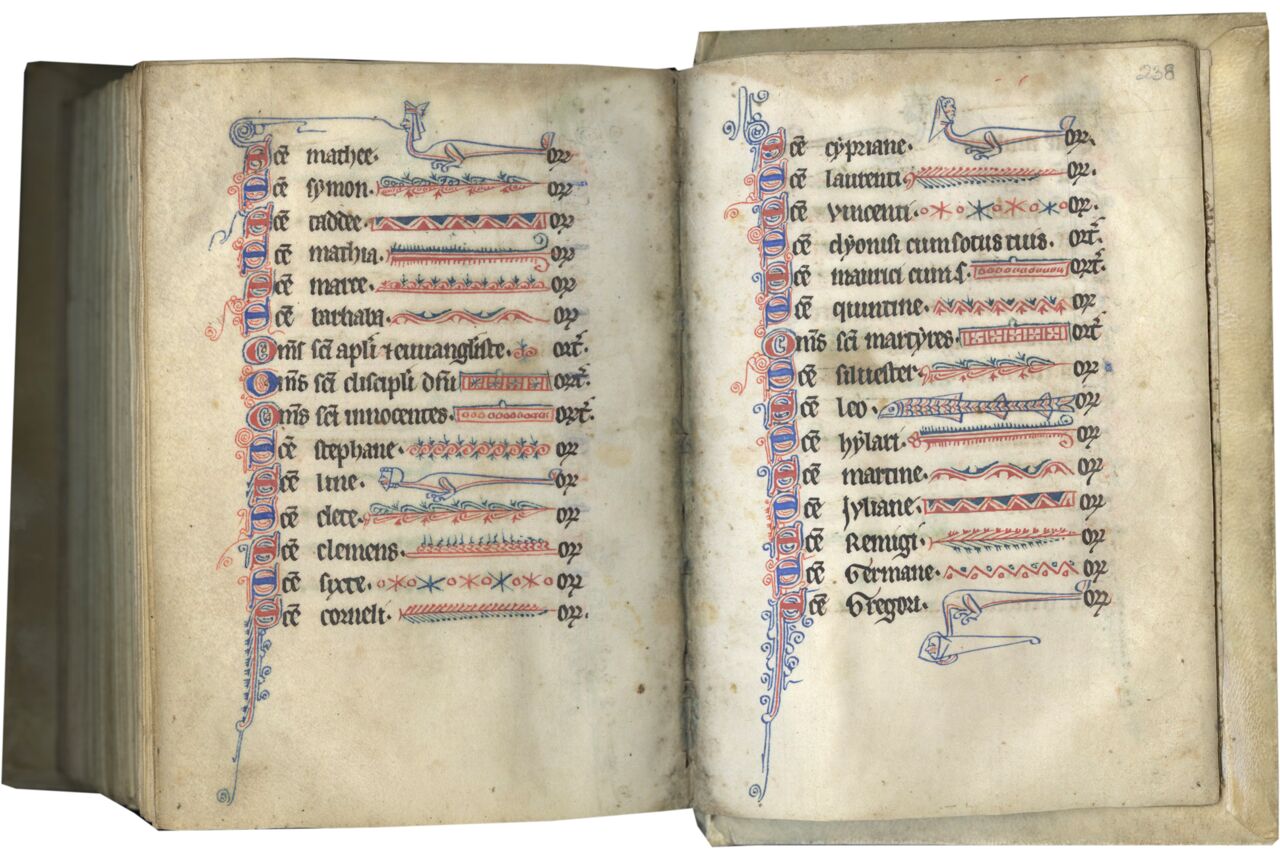 Scē mathee. or
Scē symon. or
Scē taddee. or
Scē mathia. or
Scē marce. or
Scē barnaba. or
Om̄s sc̄i apl̄i ⁊ euuangliste. ort̄.
Om̄s sc̄i discipl̄i dn̄i orat̄.
Om̄s sc̄i innocentes. orat̄.
Scē stephane. or
Scē line. or
Scē clete. or
Scē clemens. or
Scē syxte. or
Scē corneli. or.
238
Scē cypriane. or.
Scē laurenti. or.
Scē vincenti. or.
Scē dyonisi cum sotiis tuis. ort̄.
Scē maurici cum s. ort̄.
Scē quintine. or
Om̄s sc̄i martyres. ort̄
Scē siluester. or
Scē leo. or
Scē hylari. or
Scē martine. or
Scē Iuliane. or
Scē Remigi. or
Scē Germane. or
Scē Gregori. or